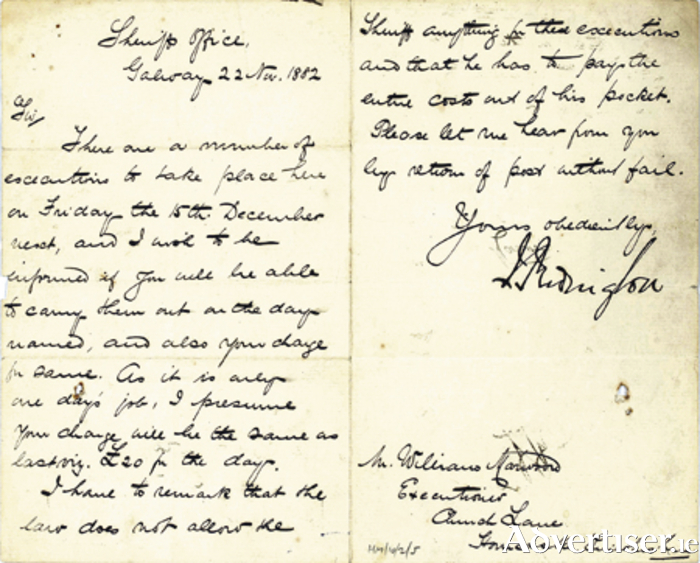 Sheriff's Office,
Galway 22 Nov. 1882
Sir/
There are a number of
executions to take place here
on Friday the 15th December
next, and I wish to be
informed if you will be able
to carry them out on the day
named, and also your charge
for same. As it is only
one day's job, I presume
your charge will be the same as
last viz. £20 for the day.
I have to remark that the
law does not allow the
Sheriff anything for these executions
and that he has to pay the
entire costs out of his pocket.
Please let me hear from you
by return of post without fail.
Yours obediently,
Redington
Mr. William Marwood
Executioner
Church Lane
Horncastle
MM/4/2/5
Advertiser.ie